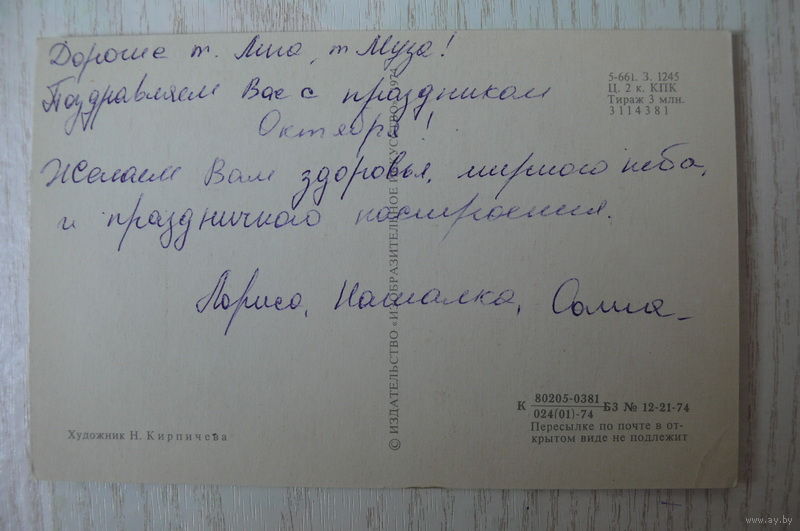 Дорогие т. Лина, т Муза!
Поздравляем Вас с праздником
Октября!
Желаем Вам здоровья, мирного неба,
и праздничного настроения.
Лариса, Наталка,
5-661. З. 1245
Ц. 2 к. КПК
Тираж 3 млн.
3114381
© ИЗДАТЕЛЬСТВО «ИЗОБРАЗИТЕЛЬНОЕ ИСКУССТВО»
Художник Н. Кирпичева
К 80205-0381 БЗ № 12-21-74
024(01)-74
Пересылке по почте в от-
крытом виде не подлежит
www.ay.by